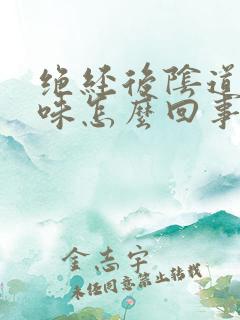 绝经後陰道
味怎麼回事
金志宇
未经同意禁止转载